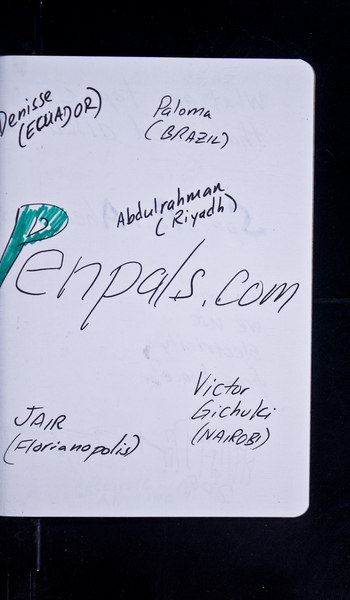 Denisse
(ECUADOR)
Paloma
(BRAZIL)
Abdulrahman
(Riyadh)
Penpals.com
Victor
Gichuki
(NAIROBI)
JAIR
(Florianopolis)